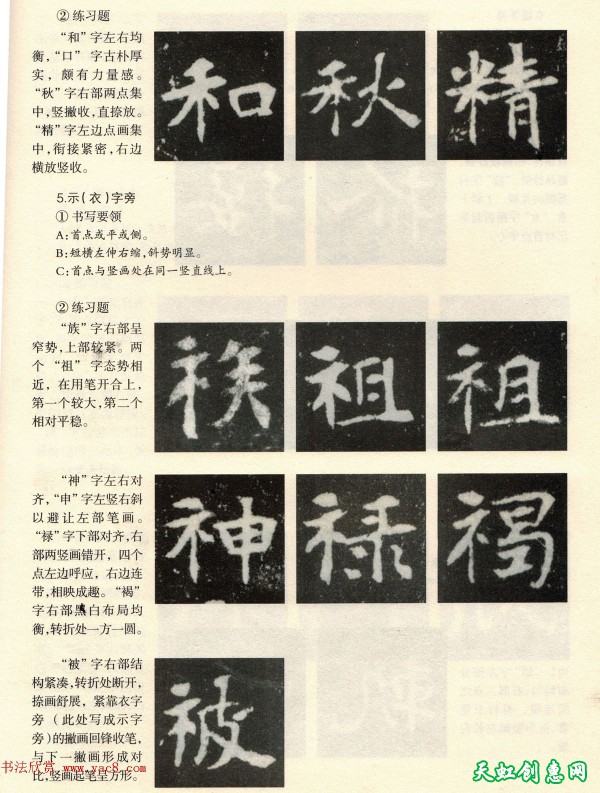 ②练习题
“和”字左右均
衡,“口”字古朴厚
实,颇有力量感。
“秋”字右部两点集
中,竖撇收,直捺放。
“精”字左边点画集
中,衔接紧密,右边
横放竖收。
和 秋 精
5.示(衣)字旁
①书写要领
A:首点或平或侧。
B:短横左伸右缩,斜势明显。
C:首点与竖画处在同一竖直线上。
②练习题
“族”字右部呈
窄势,上部较紧。两
个“祖”字态势相
近,在用笔开合上,
第一个较大,第二个
相对平稳。
祖 祖
“神”字左右对
齐,“申”字左竖右斜
以避让左部笔画。
“禄”字下部对齐,右
部两竖画错开,四个
点左边呼应,右边连
带,相映成趣。“褐”
字右部黑白布局均
衡,转折处一方一圆。
神 禄 褐
“被”字右部结
构紧凑,转折处断开,
捺画舒展,紧靠衣字
旁(此处写成示字
旁)的撇画回锋收笔,
与下一撇画形成对
比,竖画起笔呈方形。
被
书法欣赏 www.yac8.com
天虹创意网